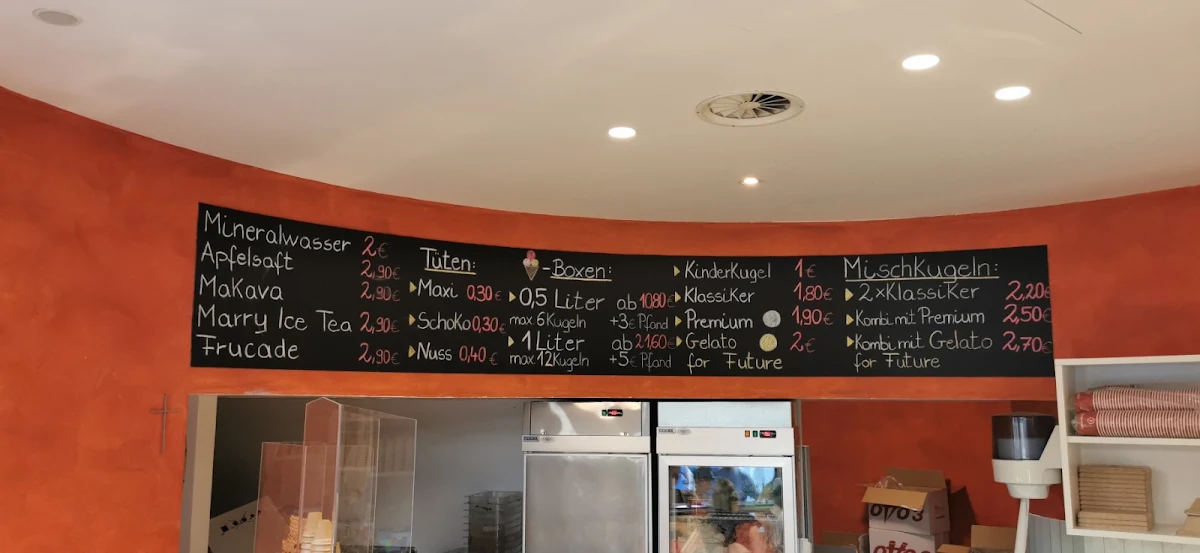 Mineralwasser 2€
Apfelsaft 2,90€
Makava 2,90€
Marry Ice Tea 2,90€
Frucade 2,90€
Tüten:
Maxi 0,30€
Schoko 0,30€
Nuss 0,40€
-Boxen:
0,5 Liter ab 10,80€
max. 6 Kugeln +3€ Pfand
1 Liter ab 21,60€
max. 12 Kugeln +5€ Pfand
Kinderkugel 1€
Klassiker 1,80€
Premium 1,90€
Gelato 2€
for Future
Mischkugeln:
2xKlassiker 2,20€
Kombi mit Premium 2,50€
Kombi mit Gelato 2,70€
for Future